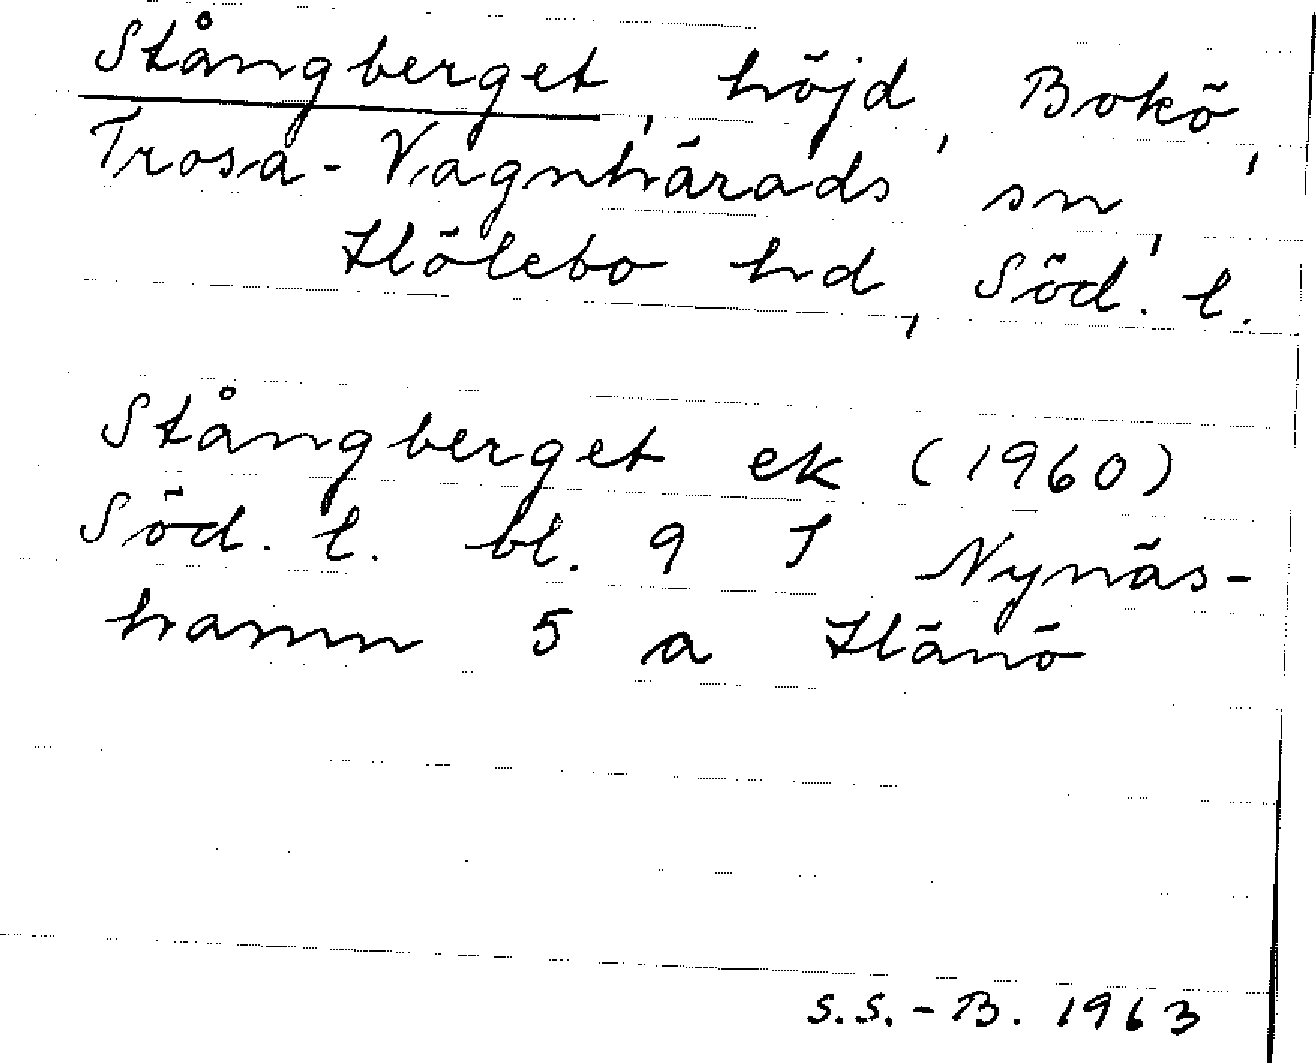 Stångberget, höjd, Bokö,
Trosa-Vagnhärads sn,
Hölebo hd, Söd. l.
Stångberget ek (1960)
Söd. l. bl. 9 I Nynäs-
hamn 5 a Hänö
S.S.-B. 1963